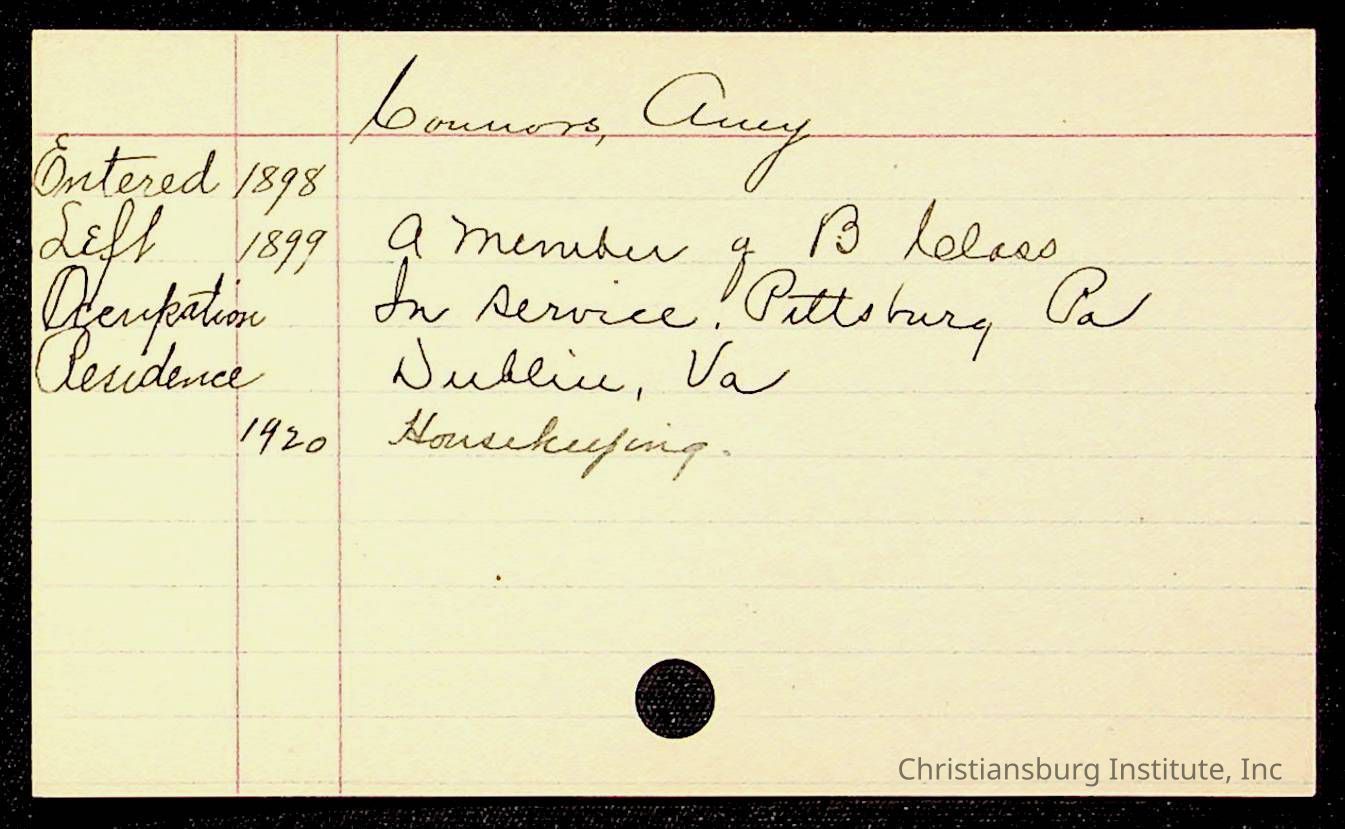 Connors, Amy
Entered 1898
Left 1899 A member of B Class
Occupation In service. Pittsburg Pa
Residence Dublin, Va
1920 Housekeeping.
Christiansburg Institute, Inc